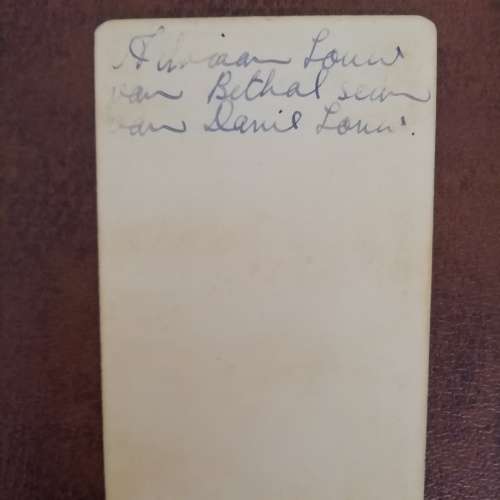 Adriaan Louw
van Bethal seun
van Danie Louw.